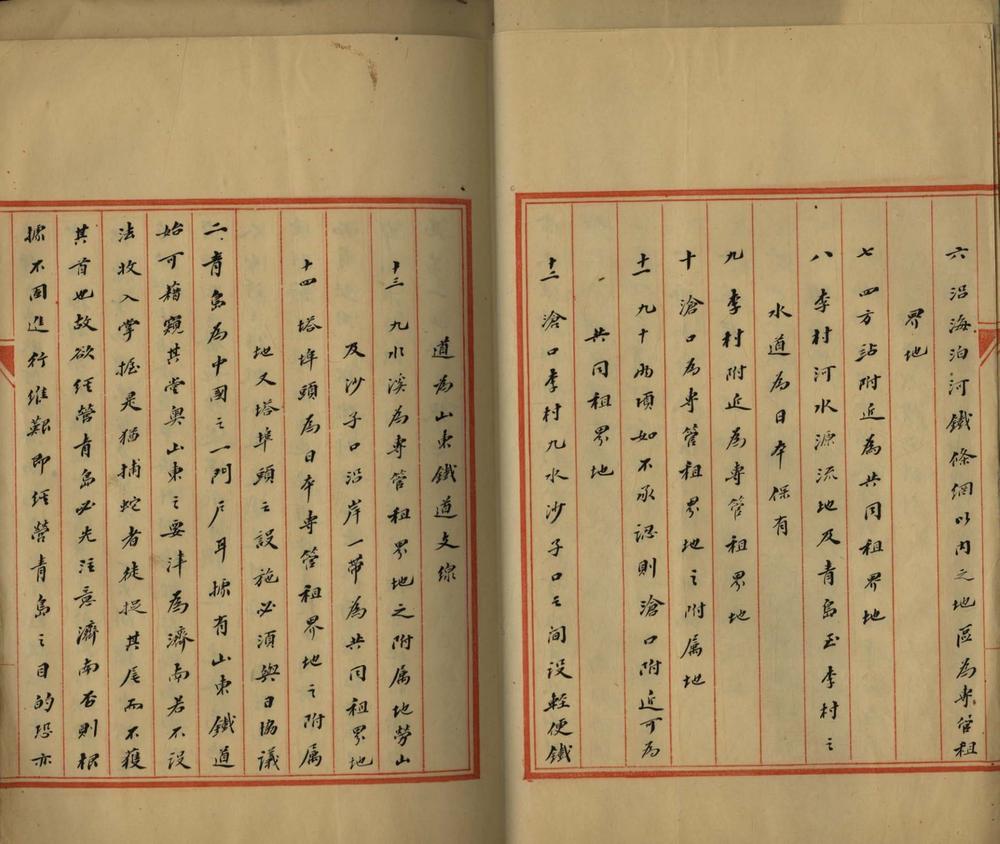 六 沿海泊河鐵條網以内之地區為專管租
界地
七 四方站附近為共同租界地
八 李村河水源流地及青島至李村之
水道為日本保有
九 李村附近為專管租界地
十 滄口為專管租界地之附属地
十一 九十兩項如不承認則滄口附近可為
共同租界地
十二 滄口李村九水沙子口之间設輕便鐵
道為山東鐵道支線
十三 九水溪為專管租界地之附属地勞山
及沙子口沿岸一帶為共同租界地
十四 塔埠頭為日本專管租界地之附属
地又塔埠頭之設施必須與日協議
二、青島為中國之一門戸耳據有山東鐵道
始可藉窺其堂奥山東之要津為濟南若不設
法收入掌握是猶捕蛇者徒捉其尾而不獲
其首也故欲經營青島必先注意濟南否則根
據不固進行維艱即經營青島之目的恐亦